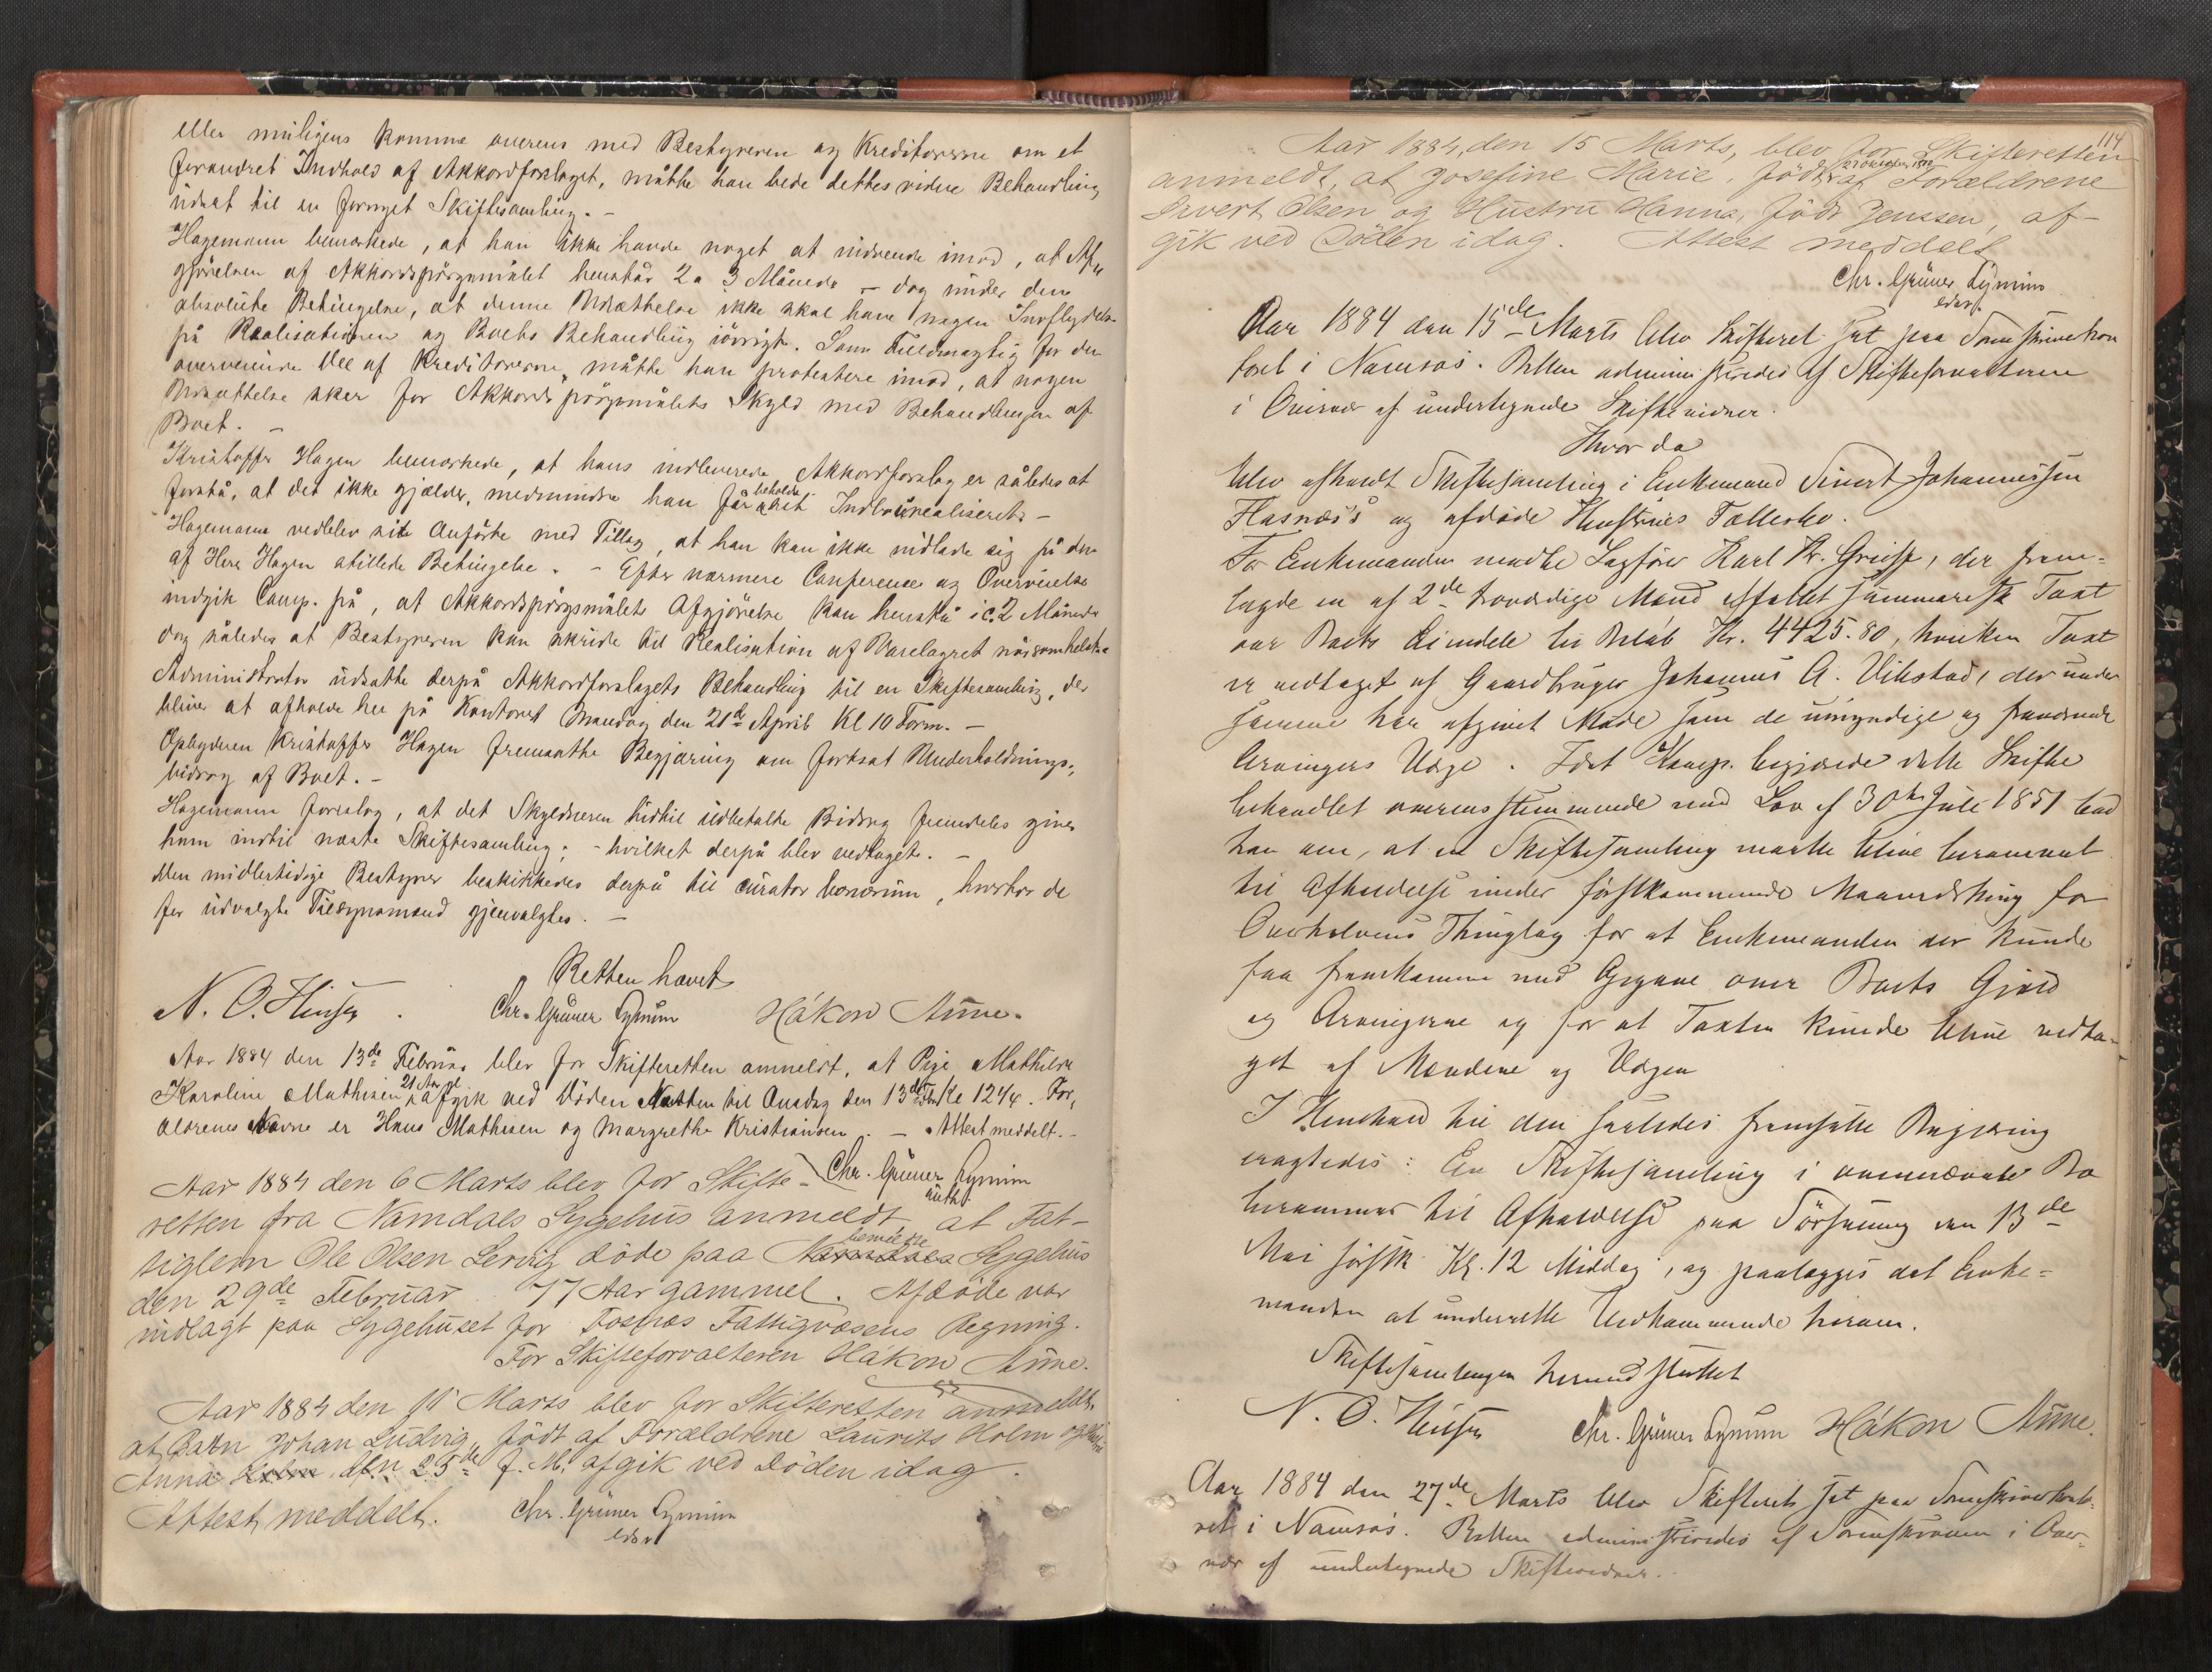 eller muligens komme overens med Bestyreren og Kreditorerne om et
forandret Indhold af Akkordforslaget, måtte han bede dettes videre Behandling
udsat til en fornyet Skiftesamling. –
Hagemann bemærkede, at han ikke havde noget at indvende imod, at Af-
gjörelsen af Akkordspörgsmålet henstår 2 a 3 Måneder – dog under den
absolute Betingelse, at denne Udsættelse ikke skal have nogen Indflydelse
på Realisationen og Boets Behandling iövrigt. Som Fuldmægtig for den
overveiende Del af Kreditorerne, måtte han protestere imod, at nogen
Udsættelse sker for Akkordspörgsmålets Skyld med Behandlingen af
Boet. –
Kristoffer Hagen bemærkede, at hans indleverede Akkordforslag er således at
forstå, at det ikke gjælder, medmindre han får beholde Indboet urealiseret. –
Hagemann vedblev sit Anförte med Tillæg, at han kan ikke indlade sig på den
af Herr Hagen stillede Betingelse. – Efter nærmere Conference og Overveielse
indgik Comp. på, at Akkordspörgsmålets Afgjörelse kan henstå i c. 2 Måneder
dog således at Bestyreren kan skride til Realisation af Varelagret nårsomhelst. –
Administrator udsatte derpå Akkordforslagets Behandling til en Skiftesamling, der
bliver at afholde her på Kontoret Mandag den 21de April Kl 10 Form. –
Opbyderen Kristoffer Hagen fremsatte Begjæring om fortsat Underholdnings-
bidrag af Boet. –
Hagemann foreslog, at det Skyldneren hidtil udbetalte Bidrag fremdeles gives
ham indtil næste Skiftesamling; – hvilket derpå blev vedtaget. –
Den midlertidige Bestyrer beskikkedes derpå til curator bonorum, hvorhos de
för udvalgte Tilsynsmænd gjenvalgtes. –
Retten hævet
N. O. Chr. Grüner Håkon Aune.
Aar 1884 den 13de Februar blev for Skifteretten anmeldt, at Pige Mathilde
Karoline Mathisen 21 Aar gl afgik ved Döden Natten til Onsdag den 13de Kl 12¼. For-
ældrenes Navne er Hans Mathisen og Margrethe Kristiansen. – Attest meddelt. –
Aar 1884 den 6 Marts blev for Skifte- Chr. Grüner
retten fra Namdals Sygehus anmeldt, at Fat-
tiglem Ole Olsen Lervig döde paa Namdals bemeldte Sygehus
den 29de Februar 77 Aar gammel. Afdöde var
indlagt paa Sygehuset for Fosnæs Fattigvæsens Regning.
For Skifteforvalteren Håkon Aune.
Aar 1884 den 11 Marts blev for Skifteretten anmeldt,
at Barn Johan Ludvig, födt af Forældrene Laurits Holm og Hustru
Anna Holm den 25de f. M. afgik ved Döden idag.
Attest meddelt. Chr. Grüner
114
Aar 1884, den 15 Marts, blev for Skifteretten
anmeldt, at Josefine Marie, födt 27 Oktober af Forældrene
Sivert Olsen og Hustru Hanna, född Jenssen, af-
gik ved Döden idag. Attest meddelt
Chr. Grüner
Aar 1884 den 15de Marts blev Skifteret sat paa Sorenskriverkon
toret i Namsos. Retten administreredes af Skifteforvalteren
i Overvær af undertegnede Skiftevidner.
Hvor da
blev afholdt Skiftesamling i Enkemand Sivert Johannessen
Flasnæs's og afdöde Hustrues Fællesbo.
For Enkemanden mødte Sagförer Karl Kr. Greiff, der frem-
lagde en af 2de troværdige Mænd affattet summarisk Taxt
over Boets Eiendele til Belöb Kr. 4425.80, hvilken Taxt
er vedtaget af Gaardbruger Johannes A. Vibstad, der under
samme har afgivet Möde som de umyndige og fraværende
Arvingers Værge. Idet Komp. begjærede dette Skifte
behandlet overensstemmende med Lov af 30te Juli 1851 bad
han om, at en Skiftesamling maatte blive berammet
til Afholdelse under förstkommende Maanedsthing for
Overhalvens Thinglag for at Enkemanden der kunde
faa fremkomme med Opgave over Boets Gjæld
og Arvingerne og for at Taxten kunde blive vedta-
get af Mændene og Værgen
I Henhold til den saaledes fremsatte Begjæring
eragtedes: En Skiftesamling i ovennævnte Bo
berammes til Afholdelse paa den 13de
Mai förstk Kl. 12 Middag, og paalægges det Enke-
manden at underrette Vedkommende herom.
Skiftesamlingen hermed sluttet
N. O. Chr. Grüner Håkon Aune.
Aar 1884 den 27de Marts blev Skifteret sat paa Sorenskriverkonto-
ret i Namsos. Retten administreredes af Sorenskriveren i Over-
vær af undertegnede Skiftevidner.